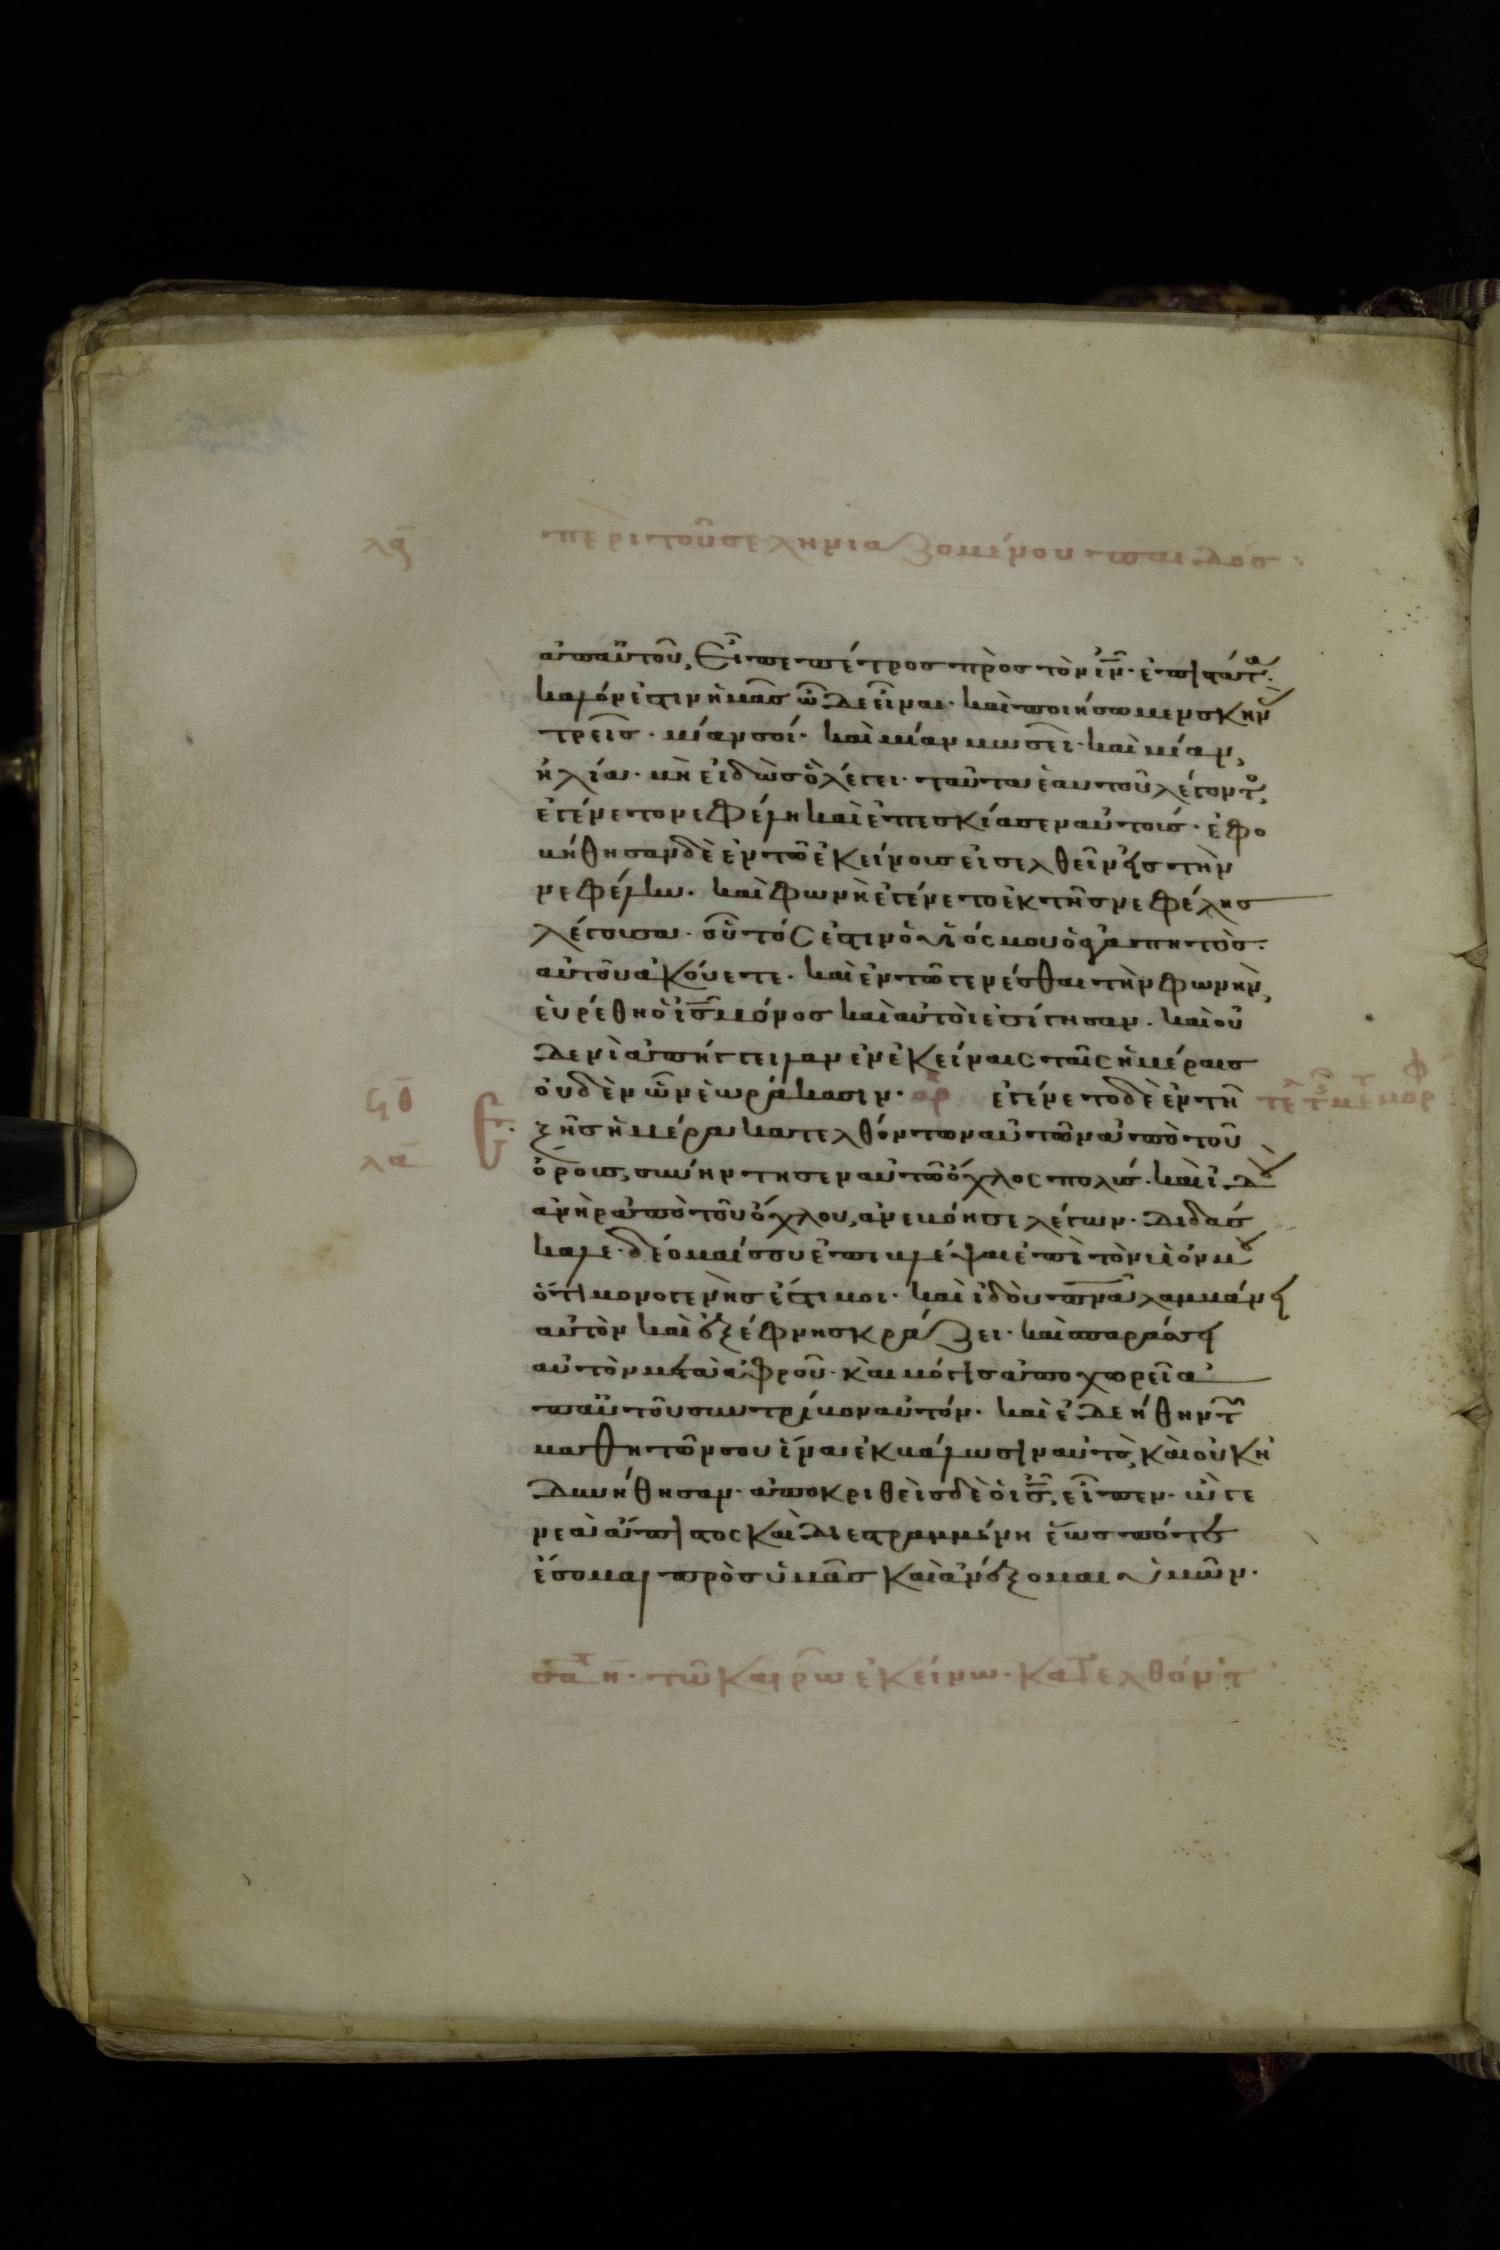 λα περὶ τοῦ σεληνιαζομένου παιδός·
ἀπαὐτοῦ, Εἶπε πέτρος πρὸς τὸν ἰν· ἐπιστάτα·
καλόν ἐστιν ἡμᾶς ὧδε εἶναι· καὶ ποιήσωμεν σκην
τρεῖς· μίαν σοί· καὶ μίαν μωσεῖ· καὶ μίαν,
ἡλία· μὴ εἰδὼς ὃ λέγει· ταῦτα δὲ αυτοῦ λέγοντος,
ἐγένετο νεφέλη καὶ ἐπεσκίασεν αὐτοις· ἐφο
βήθησαν δὲ ἐν τῶ ἐκείνους εἰσελθεῖν εἰς τὴν
νεφέλην· καὶ φωνὴ ἐγένετο ἐκ τῆς νεφέλης
λέγουσα· οὗτός ἐστιν ὁ υἱός μου ὁ ἀγαπητὸς·
αὐτοῦ ἀκούετε· καὶ ἐν τῶ γενέσθαι τὴν φωνὴν,
εὑρέθη ὁ ἰς μόνος καὶ αὐτοὶ ἐσίγησαν· καὶ οὐ
δενὶ ἀπήγγειλαν ἐν ἐκείναις ταῖς ἡμέραις
οὐδὲν ὧν ἑωράκασιν· ἐγένετο δὲ ἐν τῆ
ϟδ
ἑξῆς ἡμέρα κατελθόντων αὐτῶν ἀπὸ τοῦ
λα
ὄρους, συνήντησεν αὐτῶ ὄχλος πολύς· καὶ ἰδοὺ
ἀνὴρ ἀπὸ τοῦ ὄχλου, ἀνεβόησε λέγων· διδάσ
καλε· δέομαί σου ἐπιβλέψαι ἐπὶ τὸν υἱόν μου
ὅτι μονογενής ἐστι μοι· καὶ ἰδοὺ πνα λαμβάνει
αὐτὸν καὶ ἐξέφνης κράζει· καὶ σπαράσσει
αὐτὸν μετὰ ἀφροῦ· καὶ μόγις ἀποχωρεῖ ἀ
παὐτοῦ συντρίβον αὐτόν· καὶ ἐδεήθην τῶν
μαθητῶν σου ἵνα ἐκβάλωσιν αὐτὸ, καὶ οὐκ ἠ
δυνήθησαν· ἀποκριθεὶς δὲ ὁ ἰς, εἶπεν· ὦ γε
νεὰ ἄπιστος καὶ διεστραμμένη ἕως πότε
ἔσομαι πρὸς ὑμᾶς καὶ ἀνέξομαι ὑμῶν·
η· τῶ καιρῶ ἐκείνω· κατελθόντ